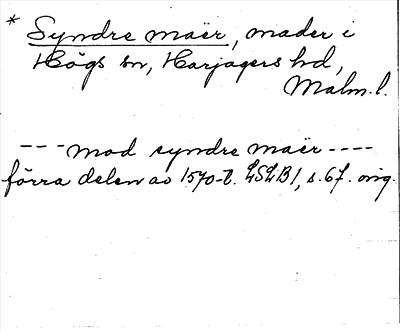 * Syndre maër, mader i
Högs sn, Harjagers hd,
Malm.l.
---mod syndre maër----
förra delen av 1570-t. LSLB1, s.67. orig.